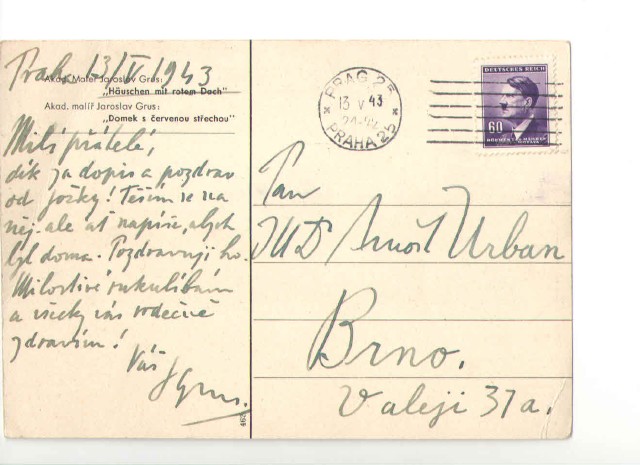 Prah. 13/V 1943
Akad. Maler Jaroslav Grus:
„Häuschen mit rotem Dach"
Akad. malíř Jaroslav Grus:
„Domek s červenou střechou"
Milí přátelé,
dík za dopis a pozdrav
od Jožky! Těším se na
něj. ale ať napíše, abych
byl doma. Pozdravuji ho.
Milostivé rukulíbám
a všecky vás srdečně
zdravím!
Váš
JGrus.
PRAG 25
13 V 43
PRAHA 25
DEUTSCHES REICH
60
BÖHMEN UND MÄHREN
Pan
JUD Arnošt Urban
Brno.
V aleji 37a.